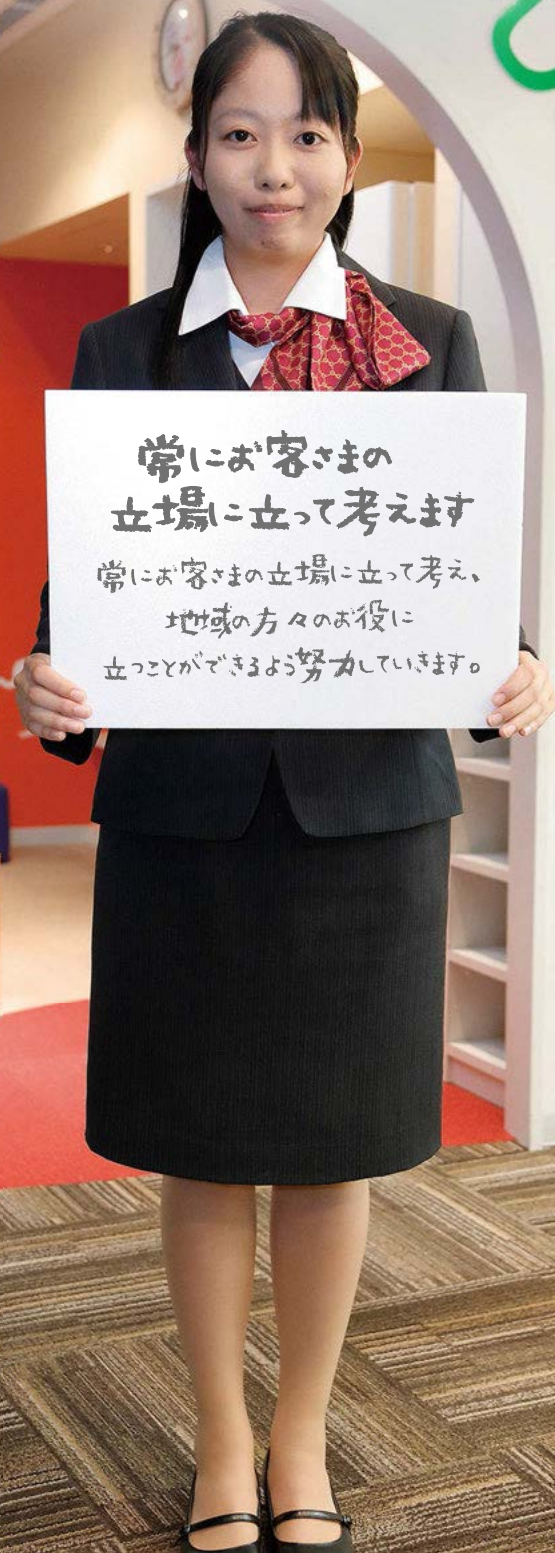 常にお客さまの
立場に立って考えます
常にお客さまの立場に立って考え、
地域の方々のお役に
立つことができるよう努力していきます。